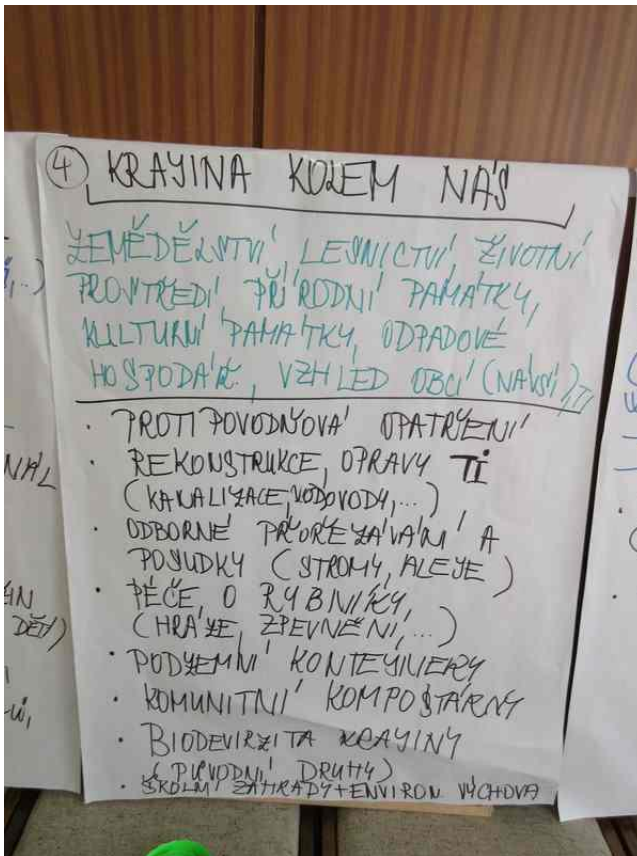 4 KRAJINA KOLEM NÁS
ZEMĚDĚLSTVÍ, LESNICTVÍ, ŽIVOTNÍ
PROSTŘEDÍ PŘÍRODNÍ PAMÁTKY,
KULTURNÍ PAMÁTKY, ODPADOVÉ
HOSPODÁŘ., VZHLED OBCÍ (NÁVSÍ), TI
• PROTIPOVODŇOVÁ OPATŘENÍ
• REKONSTRUKCE, OPRAVY TI
(KANALIZACE, VODOVODY, ...)
• ODBORNÉ PROŘEZÁVÁNÍ A
POSUDKY (STROMY, ALEJE)
• PÉČE O RYBNÍKY,
(HRÁZE, ZPEVNĚNÍ, ...)
• PODZEMNÍ KONTEJNERY
• KOMUNITNÍ KOMPOSTÁRNY
• BIODEVIRZITA KRAJINY
(PŮVODNÍ DRUHY)
• ŠKOLNÍ ZAHRADY + ENVIRON. VÝCHOVA
DĚTÍ)